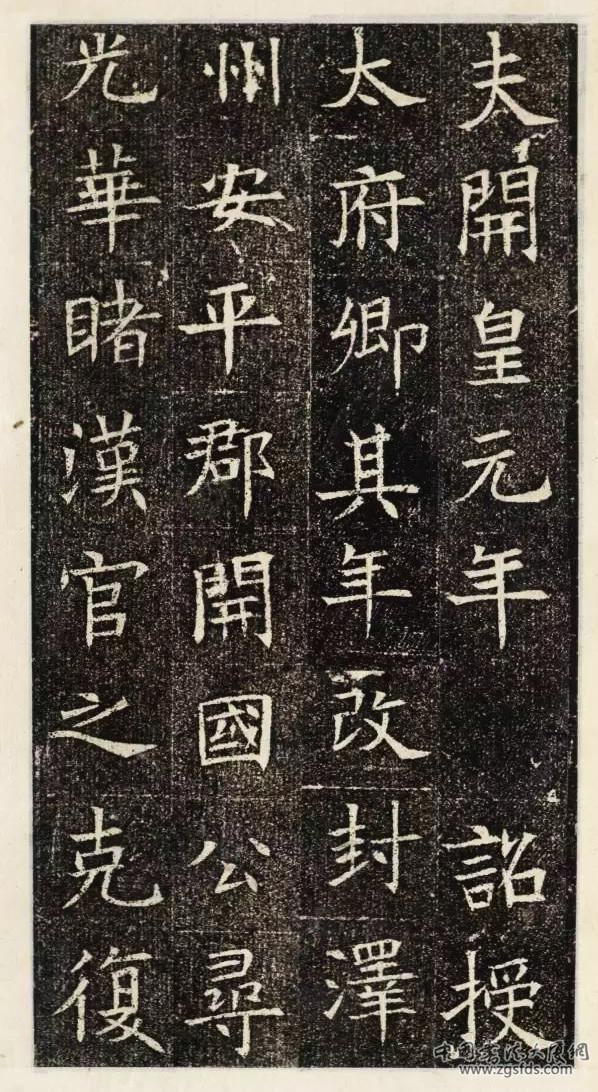 夫開皇元年 詔授
太府卿其年改封澤
州安平郡開國公尋
光華睹漢官之克復
中国书法大展網
www.zgsfds.com